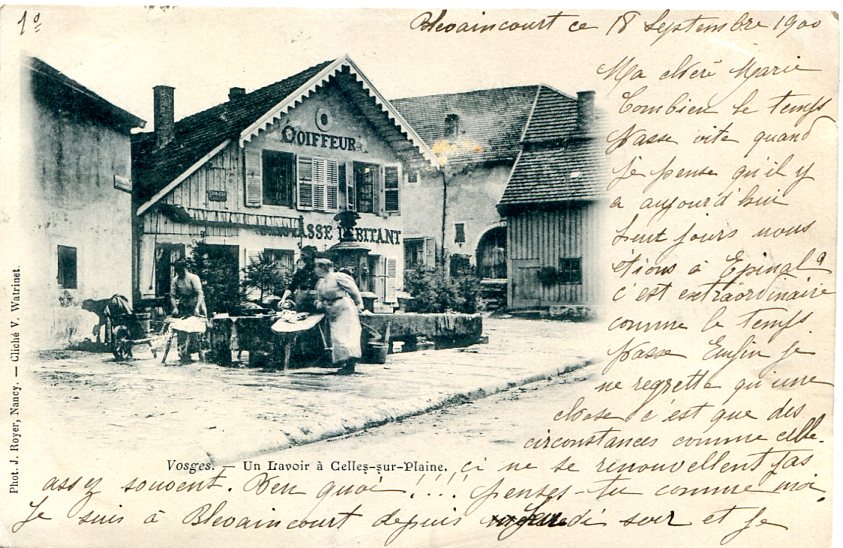 1º
Blevaincourt ce 18 Septembre 1900
Ma chère Marie
Combien le temps
passe vite quand
je pense qu'il y
a aujourd'hui
huit jours nous
étions à Epinal
c'est extraordinaire
comme le temps
passe Enfin je
ne regrette qu'une
chose c'est que des
circonstances comme celle.
ci ne se renouvellent pas
assez souvent. Ben quoi !!!! penses-tu comme moi.
Je suis à Blevaincourt depuis jeudi soir et je
COIFFEUR
DÉBITANT
Vosges. — Un Lavoir à Celles-sur-Plaine.
Phot. J. Royer, Nancy. — Cliché V. Watrinet.